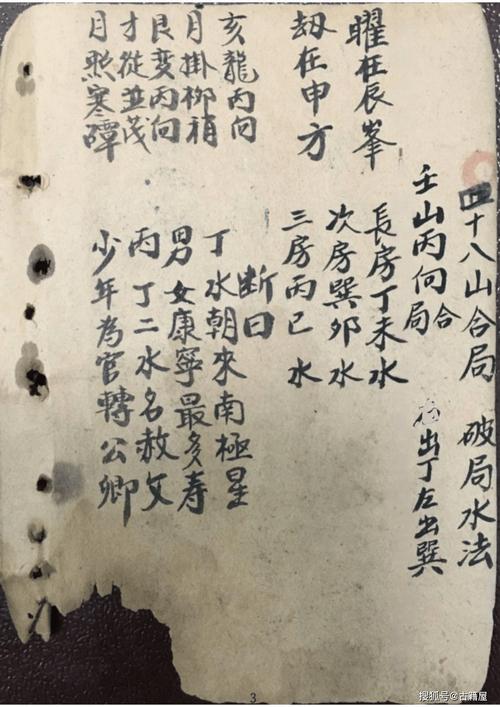 四十八山合局 破局水法
壬山丙向合局 右出丁左出巽
長房丁未水
次房巽卯水
三房丙巳水
曜在辰峯
劫在申方
断曰
丁水朝來南極星
男女康寧最多寿
丙丁二水名赦文
少年為官轉公卿
亥龍丙向
月掛柳梢
艮变丙向
才從並茂
月照寒潭
3
搜狐号@古籍屋